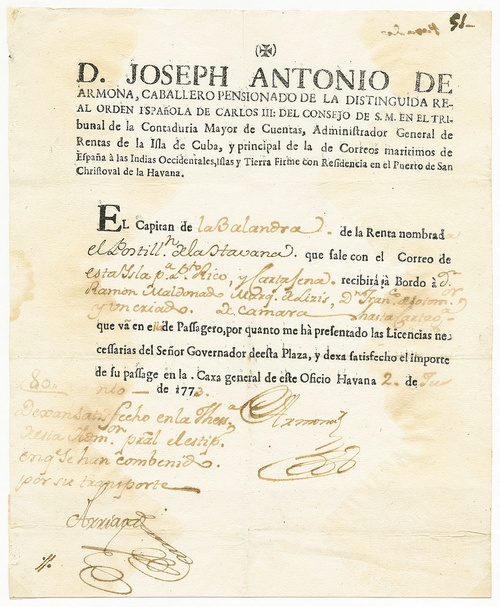 51-
(✠)
D. JOSEPH ANTONIO DE
ARMONA, CABALLERO PENSIONADO DE LA DISTINGUIDA RE-
AL ORDEN ESPAÑOLA DE CARLOS III: DEL CONSEJO DE S. M. EN EL TRI-
bunal de la Contaduria Mayor de Cuentas, Administrador General de
Rentas de la Isla de Cuba, y principal de la de Correos maritimos de
España à las Indias Occidentales, Islas y Tierra Firme con Residencia en el Puerto de San
Christoval de la Havana.
EL Capitan de la Balandra. de la Renta nombrada
el Portill.n de la Havana. que sale con el Correo de
esta Isla p.a P.to Rico, y Cartagena. recibirá jà Bordo à d.n
Ramon Maldonado Marq.s de Lizis, D.n Fran.co
y un criado. de camara hasta
que và en el de Passagero, por quanto me hà presentado las Licencias ne-
cessarias del Señor Governador de esta Plaza, y dexa satisfecho el importe
de su passage en la Caxa general de este Oficio Havana 2. de Ju-
nio de 177
Dexan satisfecho en la Thes.a
de esta Adm.on pral el estip.
en q.e se han combenido.
por su transporte
Armona
Arriaga